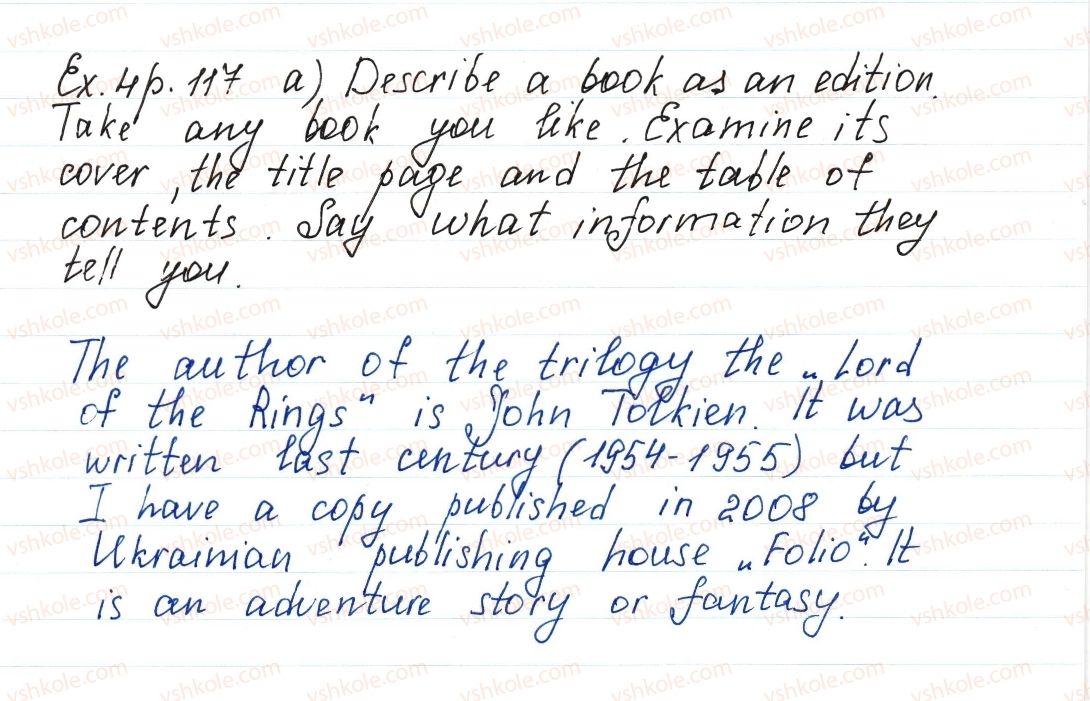 Ex. 4 p. 117 a) Describe a book as an edition.
Take any book you like. Examine its
cover, the title page and the table of
contents. Say what information they
tell you.
The author of the trilogy the „Lord
of the Rings" is John Tolkien. It was
written last century (1954-1955) but
I have a copy published in 2008 by
Ukrainian publishing house „Folio". It
is an adventure story or fantasy.